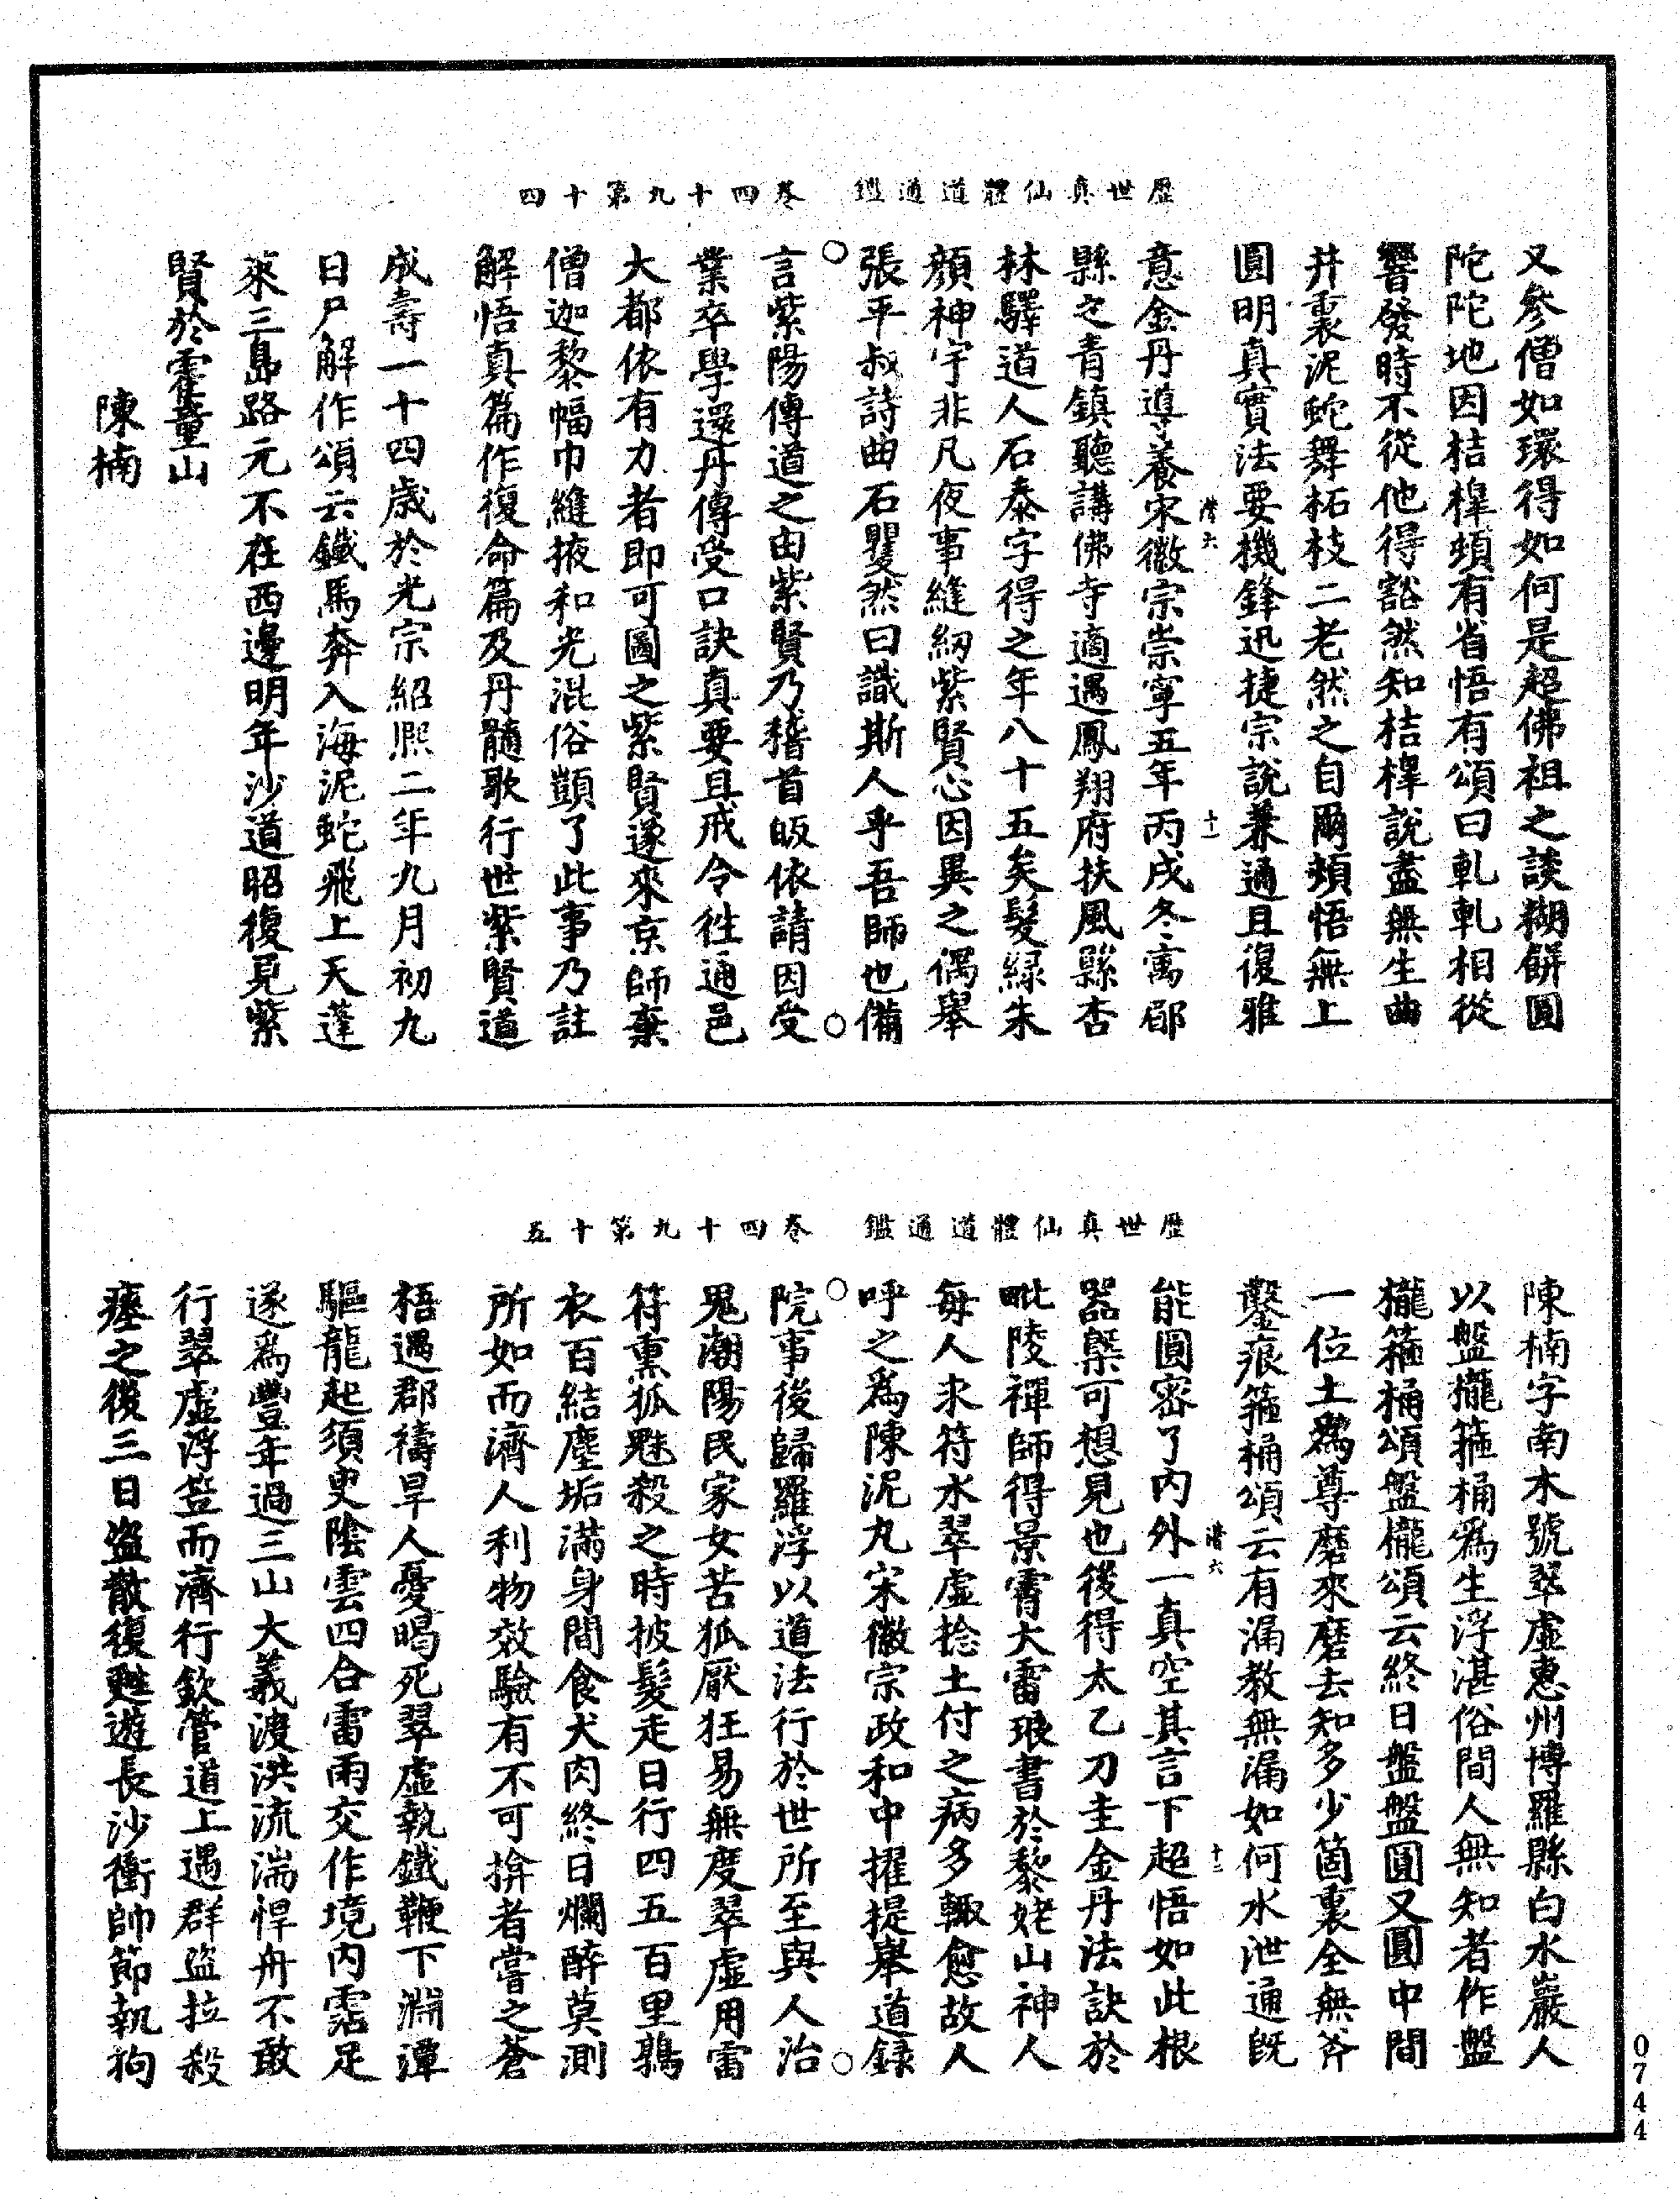 歷世真仙體道通鑑　卷四十九第十四
又參僧如環得如何是超佛祖之談糊餅圓
陀陀地因桔槔頻有省悟有頌曰軋軋相從
響發時不從他得豁然知桔槔說盡無生曲
井裏泥蛇舞柘枝二老然之自爾頻悟無上
圓明真實法要機鋒迅捷宗說兼通且復雅
意金丹導養宋徽宗崇寧五年丙戌冬寓郿
縣之青鎮聽講佛寺適遇鳳翔府扶風縣杏
林驛道人石泰字得之年八十五矣髮綠朱
顏神宇非凡夜事縫紉紫賢心因異之偶舉
張平叔詩曲石矍然曰識斯人乎吾師也備
言紫陽傳道之由紫賢乃稽首皈依請因受
業卒學還丹傳受口訣真要且戒令往通邑
大都依有力者即可圖之紫賢遂來京師棄
僧迦黎幅巾縫掖和光混俗顗了此事乃註
解悟真篇作復命篇及丹髓歌行世紫賢道
成壽一十四歲於光宗紹熙二年九月初九
日尸解作頌云鐵馬奔入海泥蛇飛上天蓬
萊三島路元不在西邊明年沙道昭復見紫
賢於霍童山
陳楠
歷世真仙體道通鑑　卷四十九第十五
陳楠字南木號翠虛惠州博羅縣白水巖人
以盤櫳箍桶為生浮湛俗間人無知者作盤
櫳箍桶頌盤櫳頌云終日盤盤圓又圓中間
一位土為尊磨來磨去知多少箇裏全無斧
鑿痕箍桶頌云有漏教無漏如何水泄通既
能圓密了內外一真空其言下超悟如此根
器槩可想見也後得太乙刀圭金丹法訣於
毗陵禪師得景霄大雷琅書於黎姥山神人
每人求符水翠虛捻土付之病多輒愈故人
呼之為陳泥丸宋徽宗政和中擢提舉道錄
院事後歸羅浮以道法行於世所至與人治
鬼潮陽民家女苦狐厭狂易無度翠虛用雷
符熏狐魅殺之時披髮走日行四五百里鶉
衣百結塵垢滿身間食犬肉終日爛醉莫測
所如而濟人利物效驗有不可揜者嘗之蒼
梧遇郡禱旱人憂暍死翠虛執鐵鞭下淵潭
驅龍起須臾陰雲四合雷雨交作境內霑足
遂為豐年過三山大義渡洪流湍悍舟不敢
行翠虛浮笠而濟行欽管道上遇群盜拉殺
瘞之後三日盜散復甦遊長沙衝帥節執拘
0744